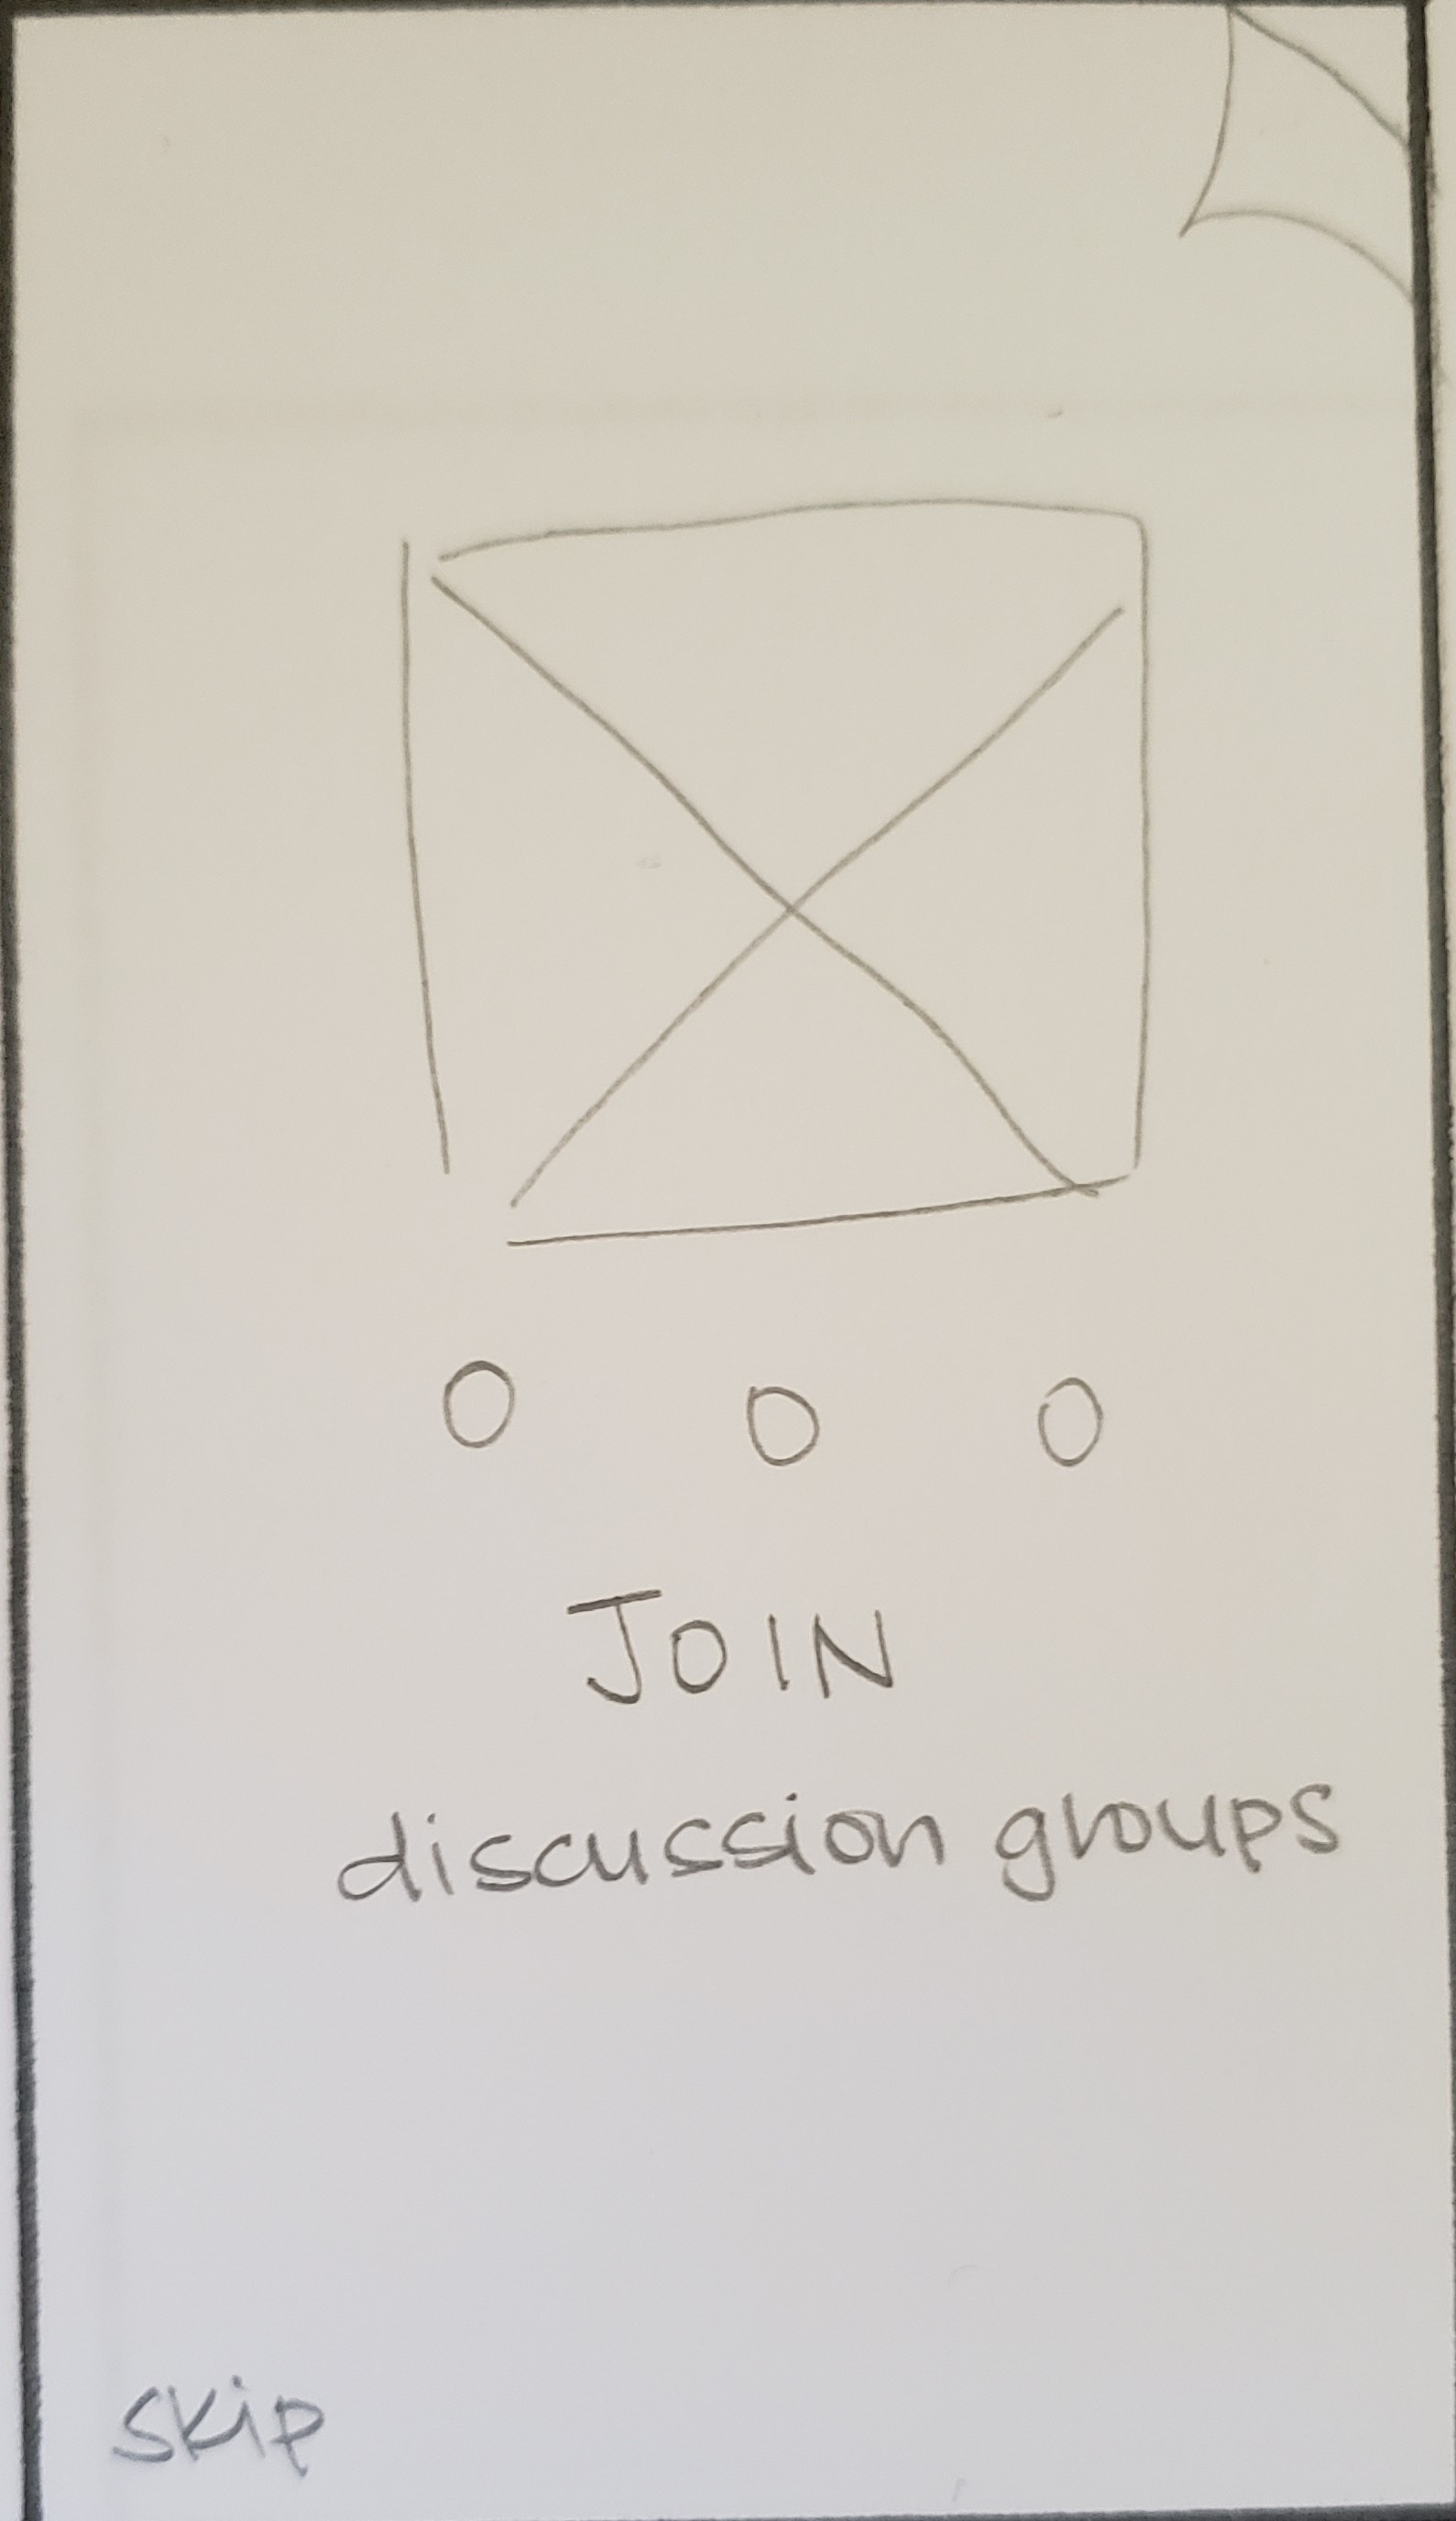 JOIN
discussion groups
skip